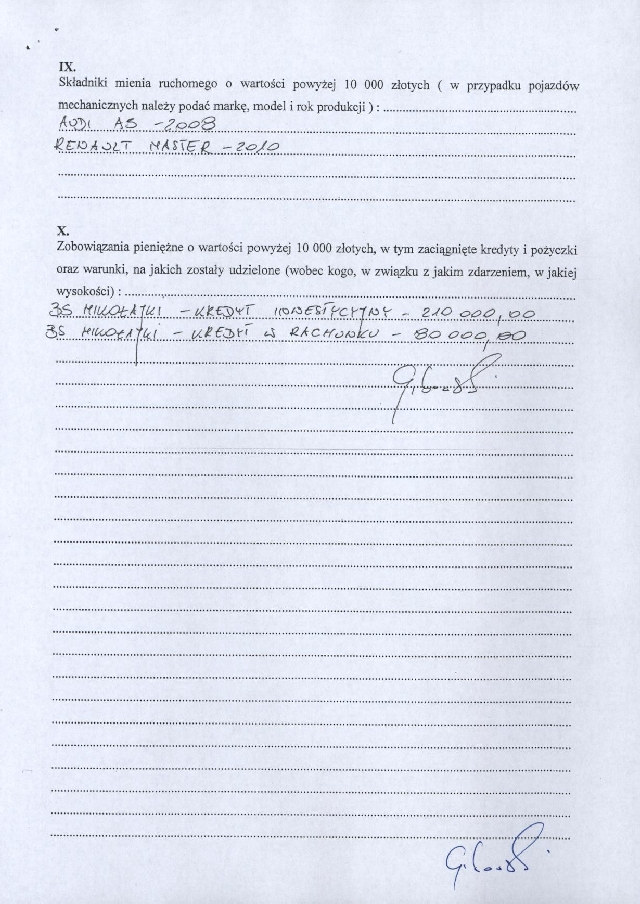 IX.
Składniki mienia ruchomego o wartości powyżej 10 000 złotych ( w przypadku pojazdów
mechanicznych należy podać markę, model i rok produkcji ) :
AUDI A5 - 2008
RENAULT MASTER - 2010
X.
Zobowiązania pieniężne o wartości powyżej 10 000 złotych, w tym zaciągnięte kredyty i pożyczki
oraz warunki, na jakich zostały udzielone (wobec kogo, w związku z jakim zdarzeniem, w jakiej
wysokości) :
BS MIKOŁAJKI - KREDYT INWESTYCYJNY - 210 000,00
BS MIKOŁAJKI - KREDYT W RACHUNKU - 80 000,00